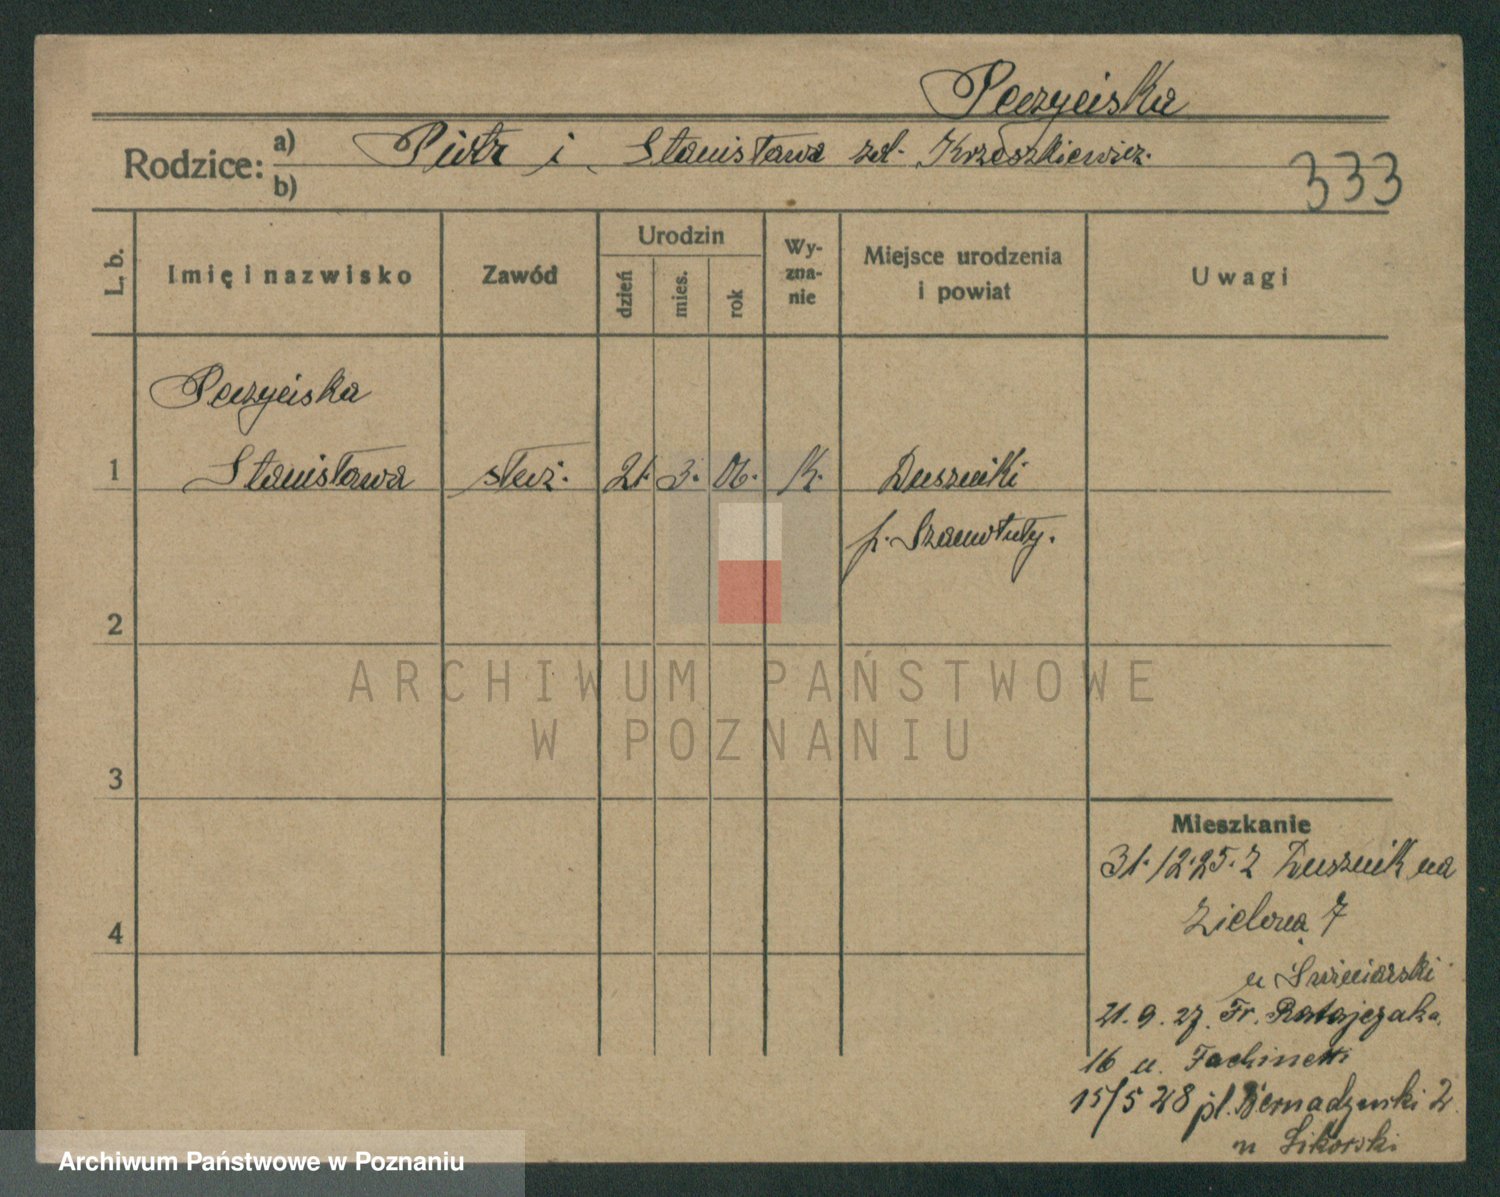 Peczyńska
Rodzice: a) Piotr i Stanisława zd. Krzoszkiewicz.
b)
333
L. b.
Imię i nazwisko
Zawód
Urodzin
dzień
mies.
rok
Wy-
zna-
nie
Miejsce urodzenia
i powiat
Uwagi
1
Stanisława służ. 21. 3. 06. K. Duszniki
p. Szamotuły.
2
ARCHIWUM PAŃSTWOWE
W POZNANIU
3
Mieszkanie
31.12.25. z Dusznik na
4
Zielona 7
u Świniarski
21.9.27. Fr. Ratajczaka,
16 u. Fachinetti
15/5 28 pl. Bernadyński 2.
u Sikorski
Archiwum Państwowe w Poznaniu